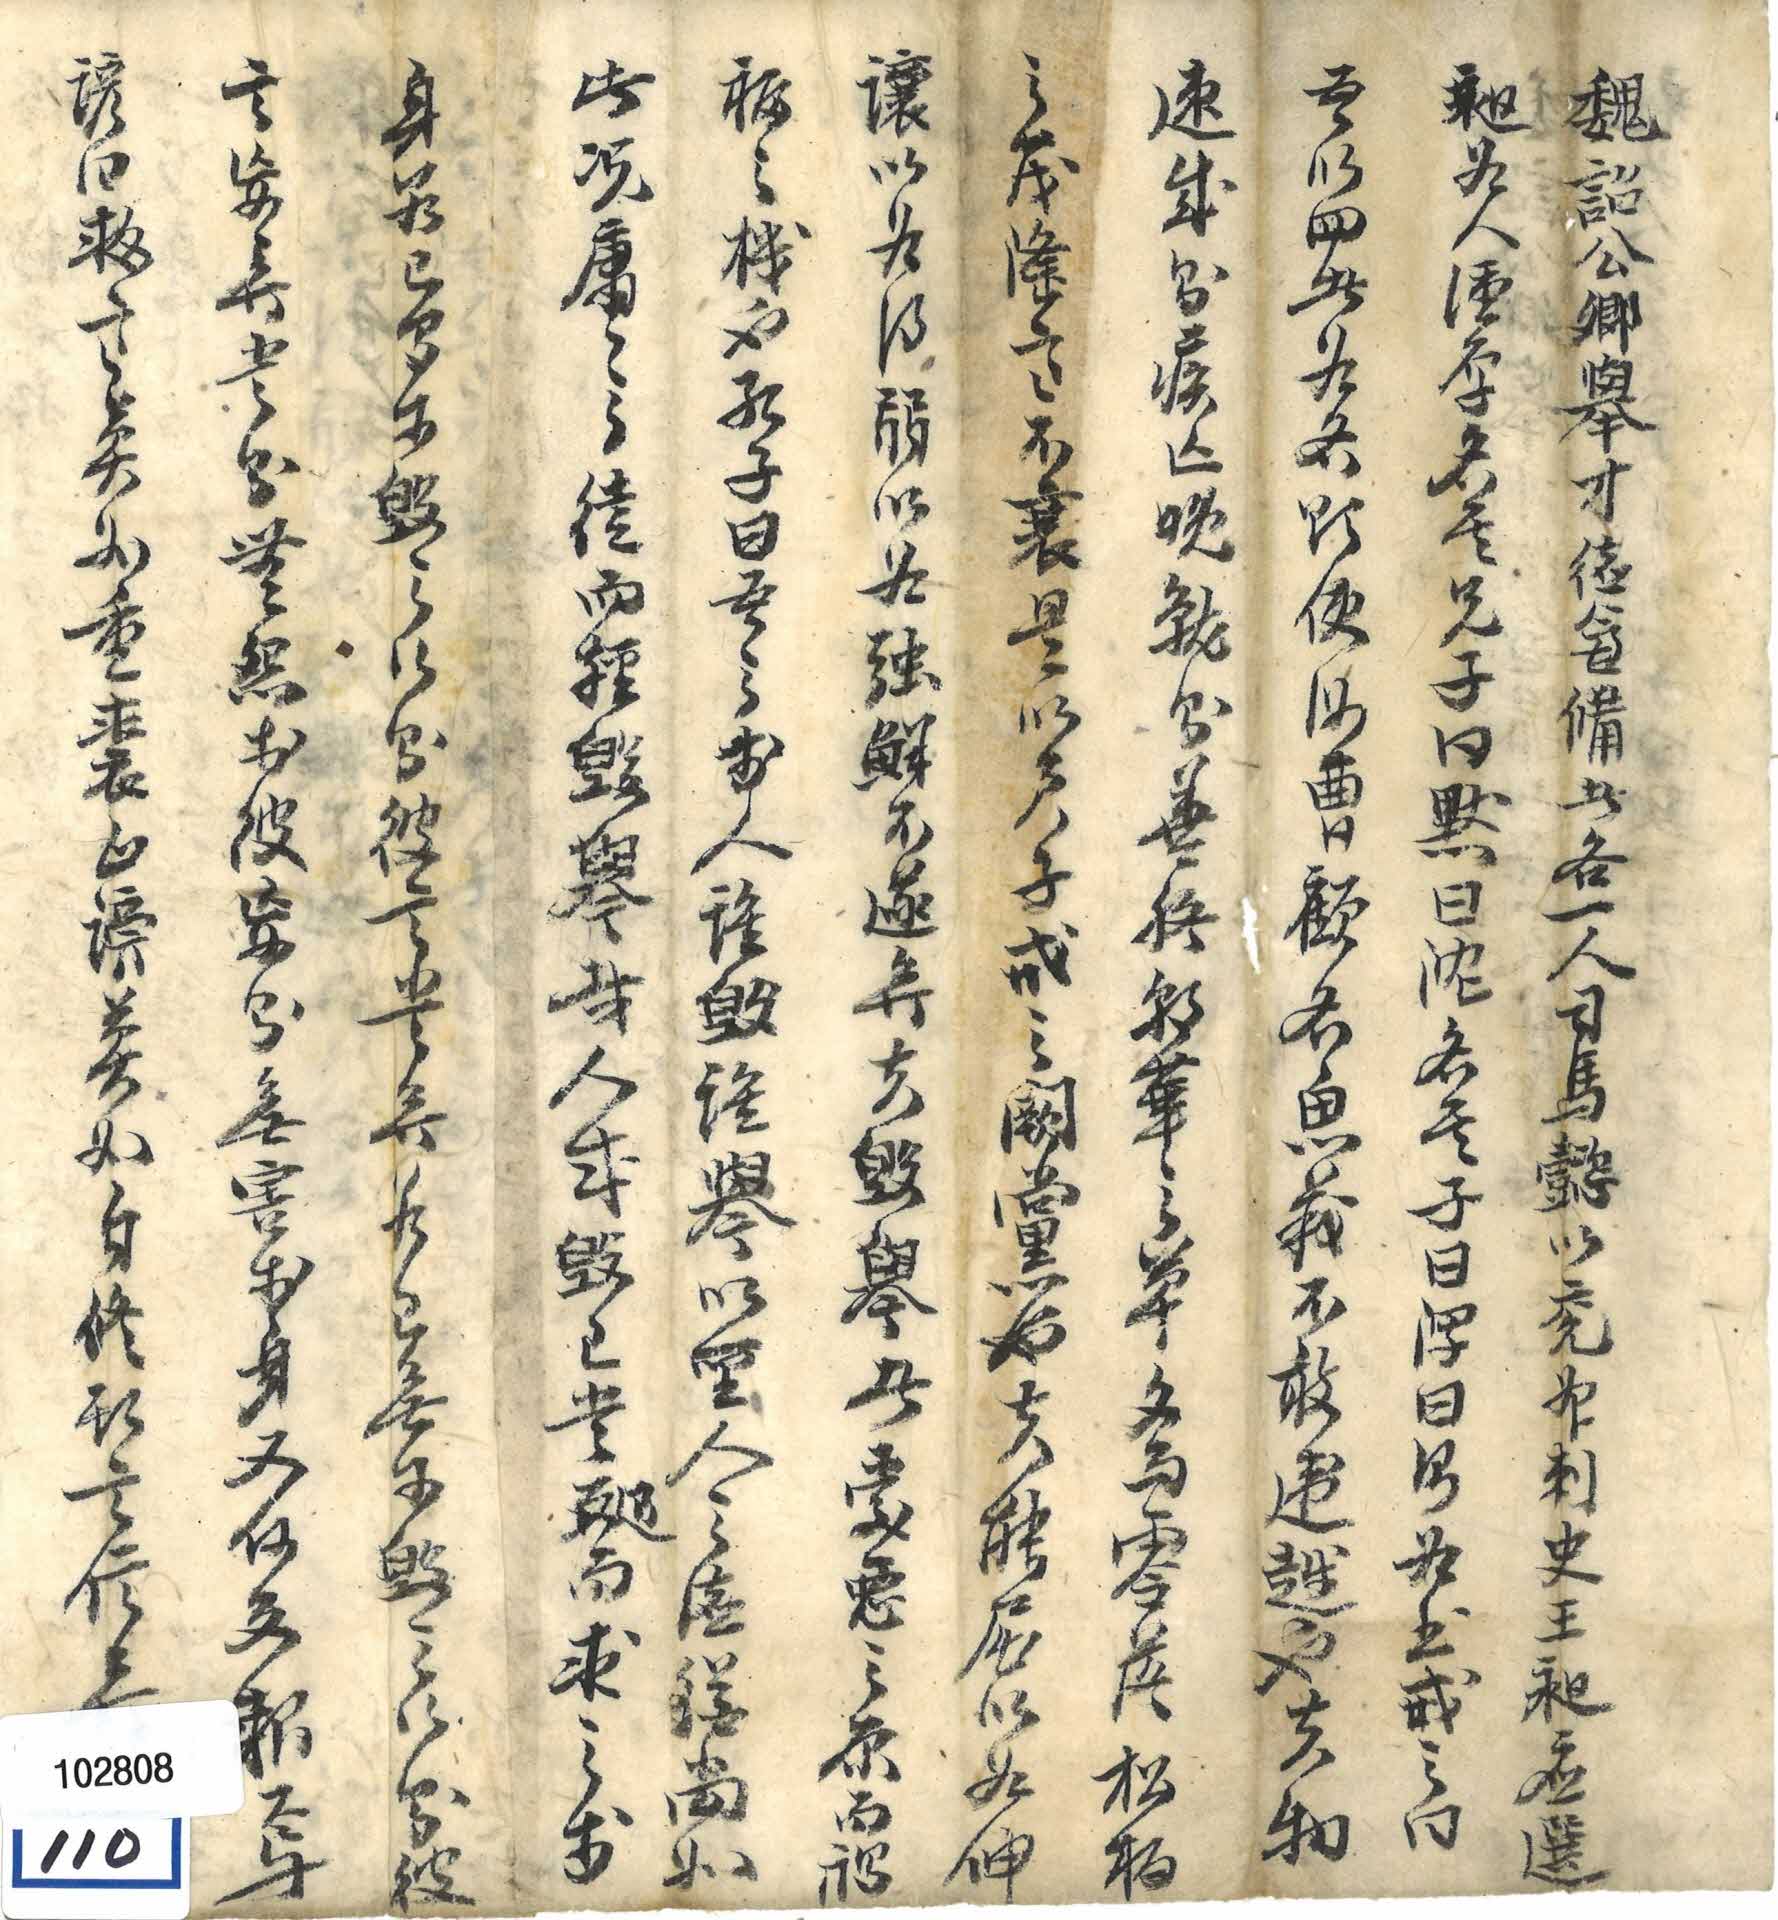 魏詔公卿舉才德兼備者各一人司馬懿以兗州刺史王昶應選
昶爲人謹厚名其兄子曰默曰沈名其子曰渾曰深爲書戒之曰
吾以四者爲名欲使汝曹顧名思義不敢違越也夫物
速成則疾亡晩就則善終朝華之草夕而零落松柏
之茂隆寒不衰是以君子戒之闕黨也夫能屈以爲伸
讓以爲得弱以爲强鮮不遂矣夫毀譽者愛惡之原而禍
福之機也孔子曰吾之於人誰毀誰譽以聖人之德猶尙如
此况庸庸之徒而輕毀譽哉人或毀己當退而求之於
身若己有可毀之行則彼言當矣若己無可毀之行則彼
言妄矣當則無怨於彼妄則無害於身又何反報焉
諺曰救寒莫如重裘止謗莫如自修斯言信
102808
110